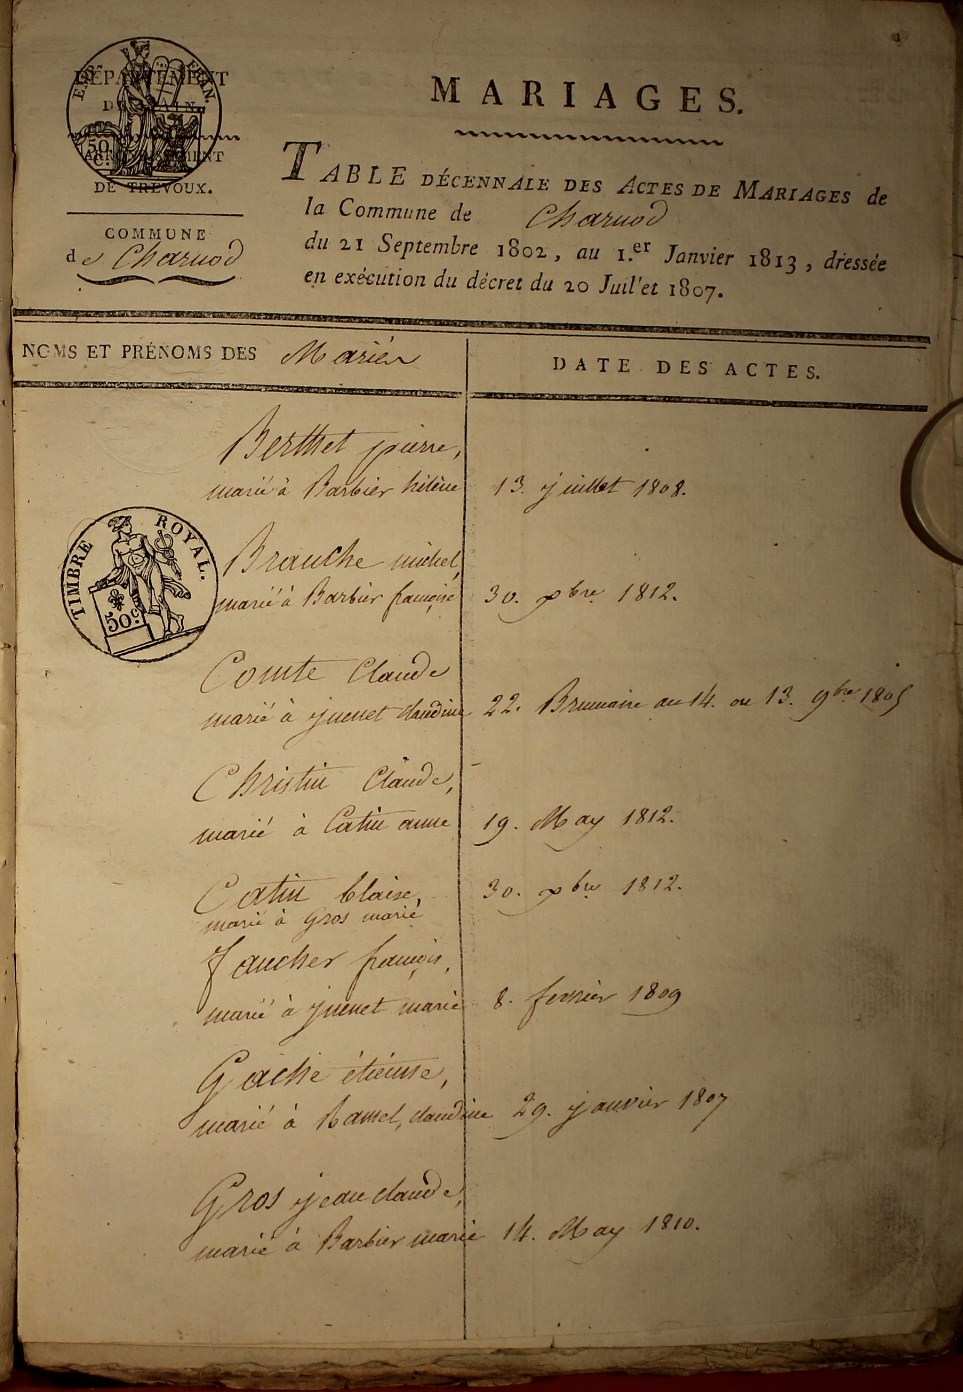 EMP.
FRAN.
50
C.
DÉPARTEMENT
DE L'AIN.
ARRONDISSEMENT
DE TRÉVOUX.
COMMUNE
de Charnod
MARIAGES.
TABLE DÉCENNALE DES ACTES DE MARIAGES de
la Commune de Charnod
du 21 Septembre 1802, au 1.er Janvier 1813, dressée
en exécution du décret du 20 Juil'et 1807.
NOMS ET PRÉNOMS DES Mariés
DATE DES ACTES.
Berthet pierre,
marié à Barbier hélène 13. juillet 1808.
TIMBRE ROYAL.
50 c.
Branche michel,
marié à Barbier françoise 30. xbre 1812.
Comte Claude
marié à juenet claudine 22. Brumaire an 14. ou 13. 9bre 1805
Christin Claude,
marié à Catin anne 19. May 1812.
Catin blaise, 30. xbre 1812.
marié à Gros marie
faucher françois,
marié à juenet marie 8. fevrier 1809
Gache étienne,
marié à Ramel, claudine 29. janvier 1807
Gros jean claude,
marié à Barbier marie 14. May 1810.